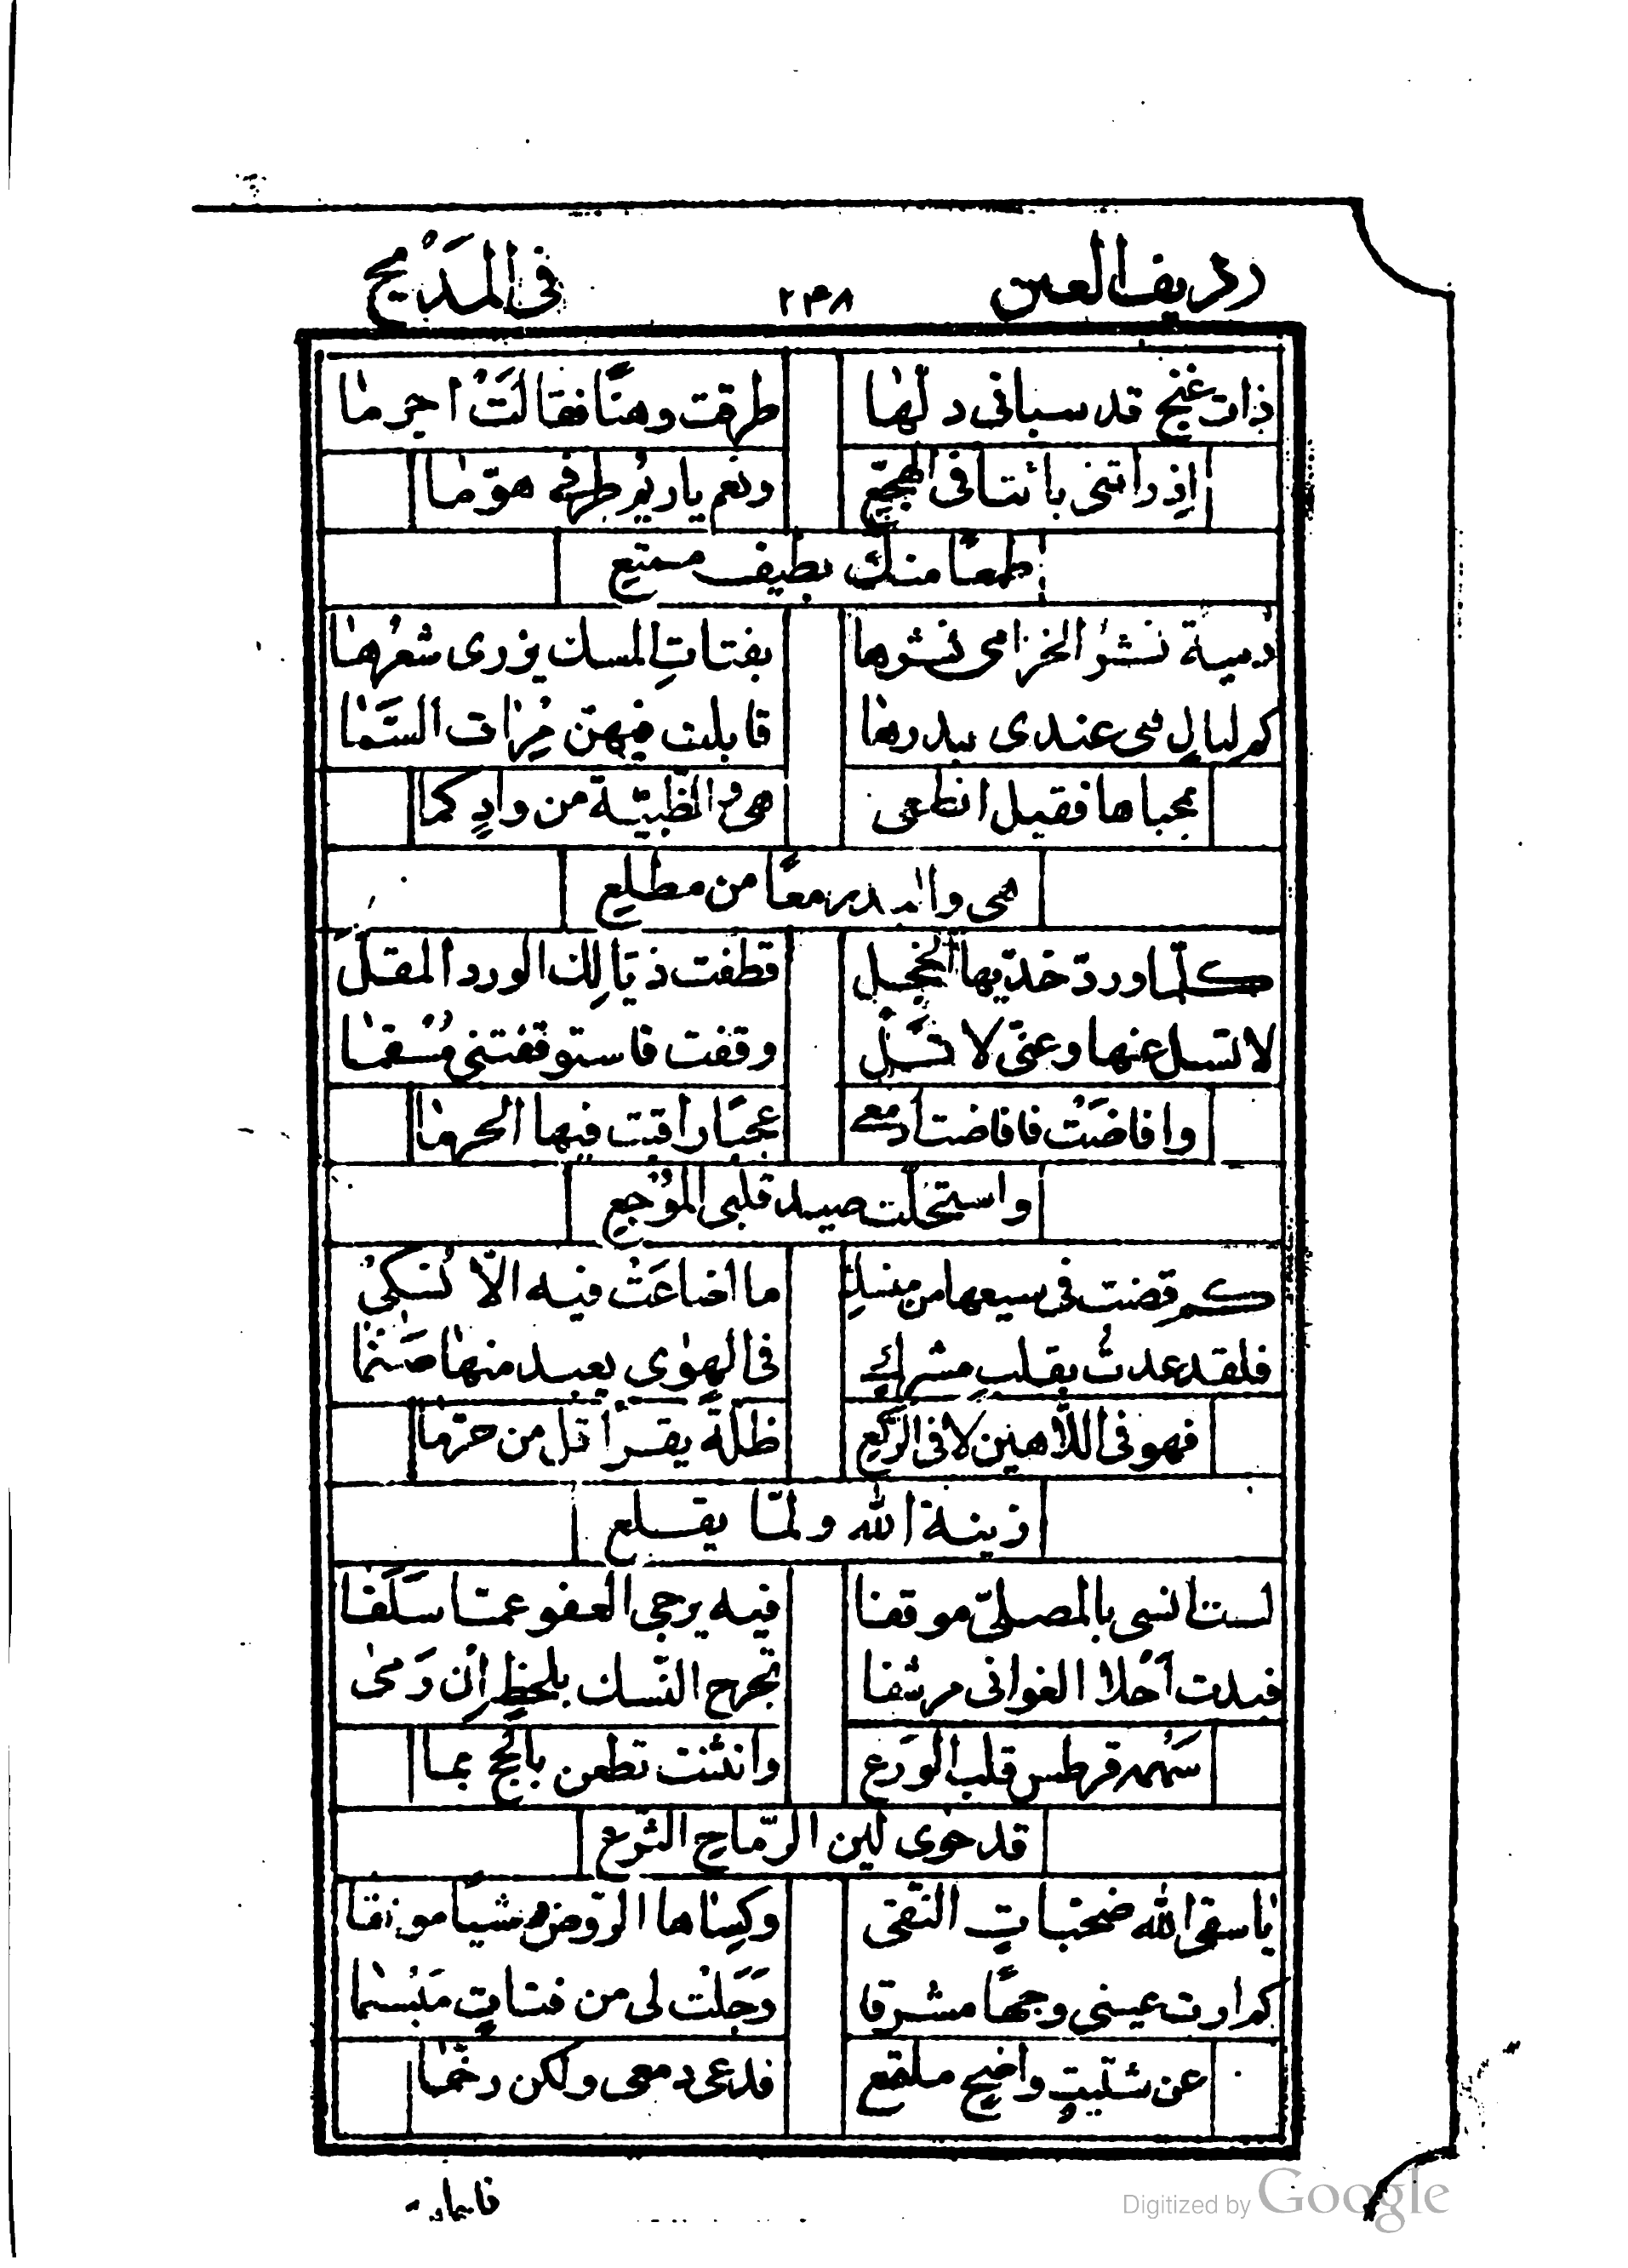 رديف العين ٢٣٨ فى المَديح
ذات غنج قد سبانى دلّها طرقت وهنًا فقالَتْ احرما
اذ راتنى بائتا فى الهجّع ونعم ياريم طرفى هوّما
طمعًا منك بطيف ممتع
دمية نشرُ الخزامى نشرها بفتاتِ المسك يزرى شعرُها
كم ليالٍ لى عندى ببدرها قابلت فيهنّ مِرٰات السَّمٰا
بمحياها فقيل انطلعى هى والظبيّة من وادٍ كما
هى والبدر معًا من مطلع
كلّما وردّ خدّيها الخجل قطفت ذيّالِك الورد المقل
لا تسل عنها وعنّى لا تسَل وقفت فاستوقفتنى مُسقمٰا
وافاضَتْ فافاضت ادمعى عجبًا راقبت فيها الحرمٰا
واستحلت صيد قلبى المُوْجع
كم قضت فى سعيها من منسك ما اضاعَتْ فيه الّا نُسكى
فلقد عدتُ بقلبٍ مشركٍ فى الهوٰى يعبد منهٰا صَنَمٰا
فهو فى اللّاهين لا فى الرّكع ظلّةً يقرأ قل من حرّما
زينة الله ولمّا يقلع
لست انسى بالمصلىّ موقفا فيه يرجى العفو عمّا سَلَفا
فبدت أحلا الغوانى مرشفا تجرح النّسك بلحظٍ اِن رَمىٰ
سَهْمه قرطس قلب الوَرع وانثنت تطعن بالحج بما
قد حوى لين الرّماح الشّرع
يٰا سقى الله ضحبات النّقى وكسٰاها الرّوض وشيًا مونقا
كم ارت عينى وجهًا مشرقا وَجَلَتْ لى من فتاتٍ مَبْسمٰا
عن شتيتٍ واضحٍ ملتمع فدعى دمعى ولكن رخّما